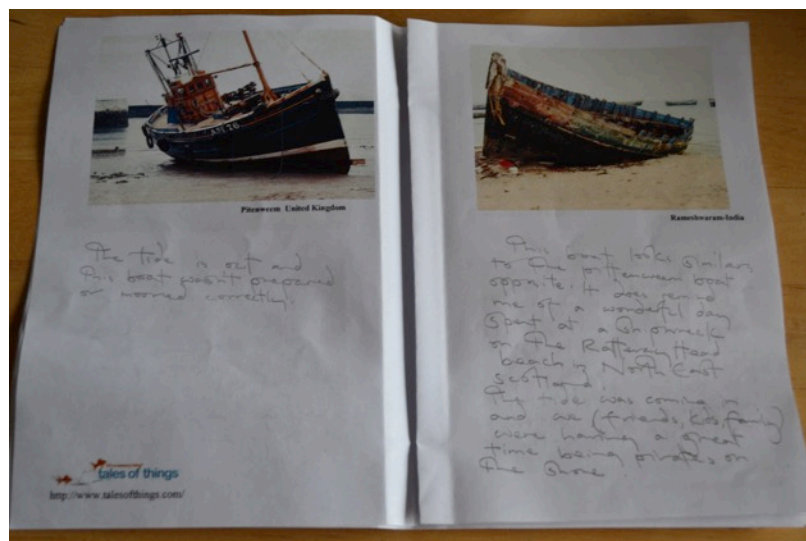 AH 76
Pitenweem United Kingdom
The tide is out and
this boat wasn't prepared
or moored correctly.
tales of things
http://www.talesofthings.com/
Rameshwaram-India
This boat looks similar
to the pittenweem boat
opposite. It does remind
me of a wonderful day
spent at a Shipwreck
on the Ratteray Head
beach in North East
Scotland.
The tide was coming in
and we (friends, kids, family)
were having a great
time being pirates on
the Shore.